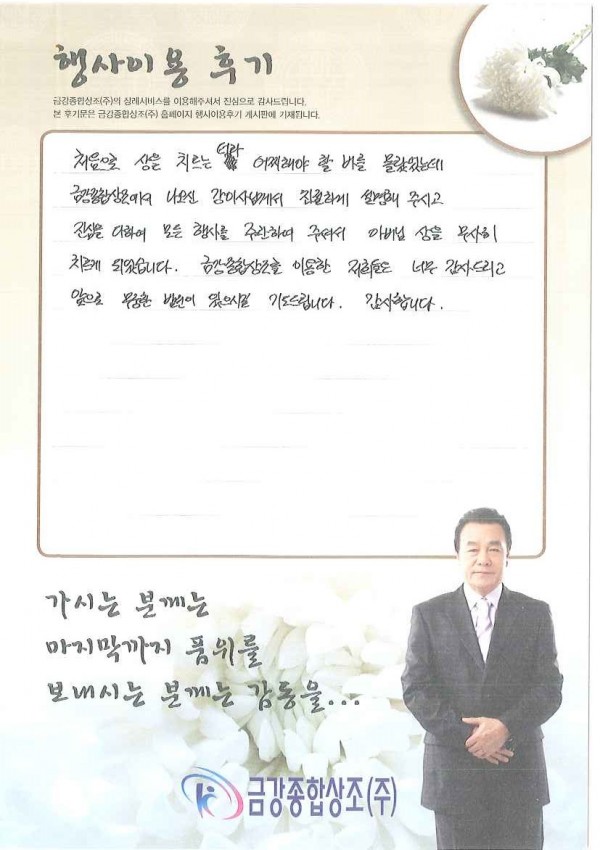 행사이용 후기
금강종합상조(주)의 장례서비스를 이용해주셔서 진심으로 감사드립니다.
본 후기문은 금강종합상조(주) 홈페이지 행사이용후기 게시판에 기재됩니다.
처음으로 상을 치르는 터라 어찌해야 할 바를 몰랐었는데
금강종합상조에서 나오신 강이사님께서 친절하게 설명해 주시고
진심을 다하여 모든 행사를 주관하여 주셔서 아버님 상을 무사히
치르게 되었습니다. 금강종합상조를 이용한 저희들도 너무 감사드리고
앞으로 무궁한 발전이 있으시길 기도드립니다. 감사합니다.
가시는 분께는
마지막까지 품위를
보내시는 분께는 감동을...
금강종합상조(주)